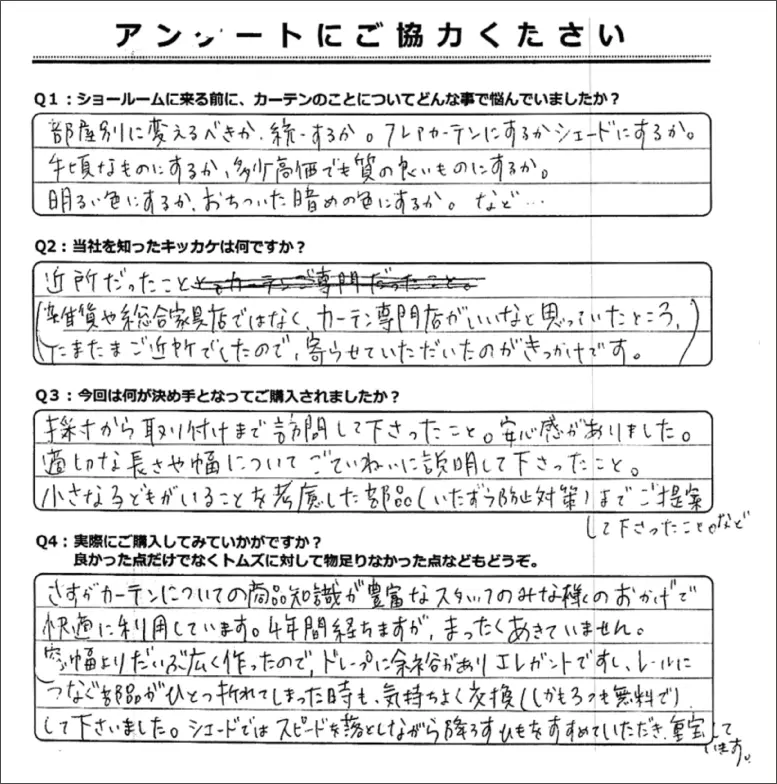 アンケートにご協力ください
Q1：ショールームに来る前に、カーテンのことについてどんな事で悩んでいましたか？
部屋別に変えるべきか、統一するか。フレアカーテンにするかシェードにするか。
手頃なものにするか、多少高価でも質の良いものにするか。
明るい色にするか、おちついた暗めの色にするか。など…
Q2：当社を知ったキッカケは何ですか？
近所だったことと、カーテンご専門だったこと。
(雑貨や総合家具店ではなく、カーテン専門店がいいなと思っていたところ、
たまたまご近所でしたので、寄らせていただいたのがきっかけです。)
Q3：今回は何が決め手となってご購入されましたか？
採寸から取り付けまで訪問して下さったこと。安心感がありました。
適切な長さや幅についてごていねいに説明して下さったこと。
小さな子どもがいることを考慮した部品(いたずら防止対策)までご提案
して下さったこと。など
Q4：実際にご購入してみていかがですか？
良かった点だけでなくトムズに対して物足りなかった点などもどうぞ。
さすがカーテンについての商品知識が豊富なスタッフのみな様のおかげで
快適に利用しています。4年間経ちますが、まったくあきていません。
窓幅よりだいぶ広く作ったので、ドレープに余裕がありエレガントですし、レールに
つなぐ部品がひとつ折れてしまった時も、気持ちよく交換(しかも2つも無料で)
して下さいました。シェードではスピードを落としながら降ろすひもをすすめていただき、重宝して
います。